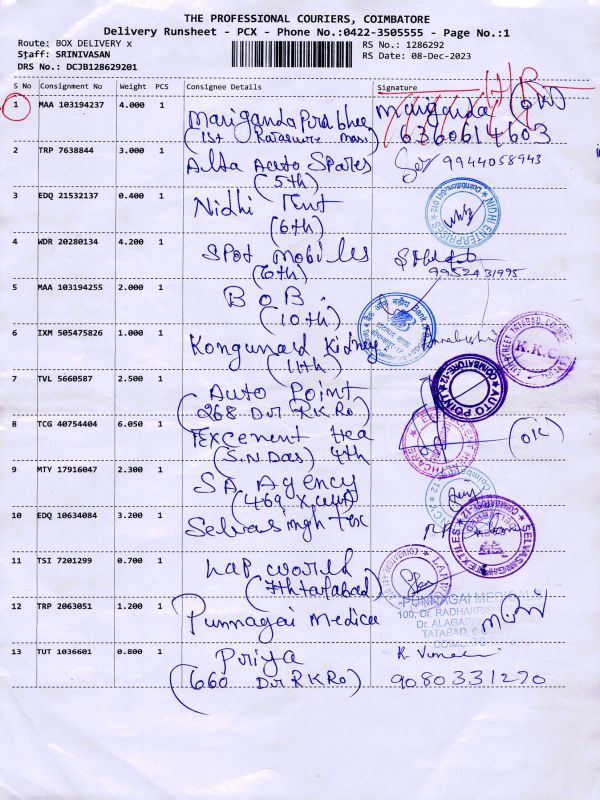 THE PROFESSIONAL COURIERS, COIMBATORE
Delivery Runsheet - PCX - Phone No.:0422-3505555 - Page No.:1
Route: BOX DELIVERY x
Staff: SRINIVASAN
DRS No.: DCJB128629201
RS No.: 1286292
RS Date: 08-Dec-2023
S No Consignment No Weight PCS Consignee Details Signature
1 MAA 103194237 4.000 1 Mariganda Prabhee Mariganda (OK)
(1st 6360614603
2 TRP 7638844 3.000 1 Alta Auto Spares 9944058943
(5th)
3 EDQ 21532137 0.400 1 Nidhi Tent NIDHI ENTERPRISES
(6th)
4 WDR 20280134 4.200 1 Spot Mobiles
(6th) 9952431995
5 MAA 103194255 2.000 1 BOB.
(10th)
6 IXM 505475826 1.000 1 Kongunard Kidney
(11th)
7 TVL 5660587 2.500 1 Auto Point AUTO POINT COIMBATORE-12
(268 Dr RKRo)
8 TCG 40754404 6.050 1 Tea (OK)
(S.N Das) 4th
9 MTY 17916047 2.300 1 SA Agency
(469
10 EDQ 10634084 3.200 1 Selvas ingh Tex SELVASINGH TEXTILES
11 TSI 7201299 0.700 1 Lap World
(7th tatabad)
12 TRP 2063051 1.200 1 Punnagai Medica PUNNAGAI
100, Dr. RADHAKRISH
Dr. ALAGAP
TATABAD,
13 TUT 1036601 0.800 1 Priya
(660 Dr RKRo) 9080331270